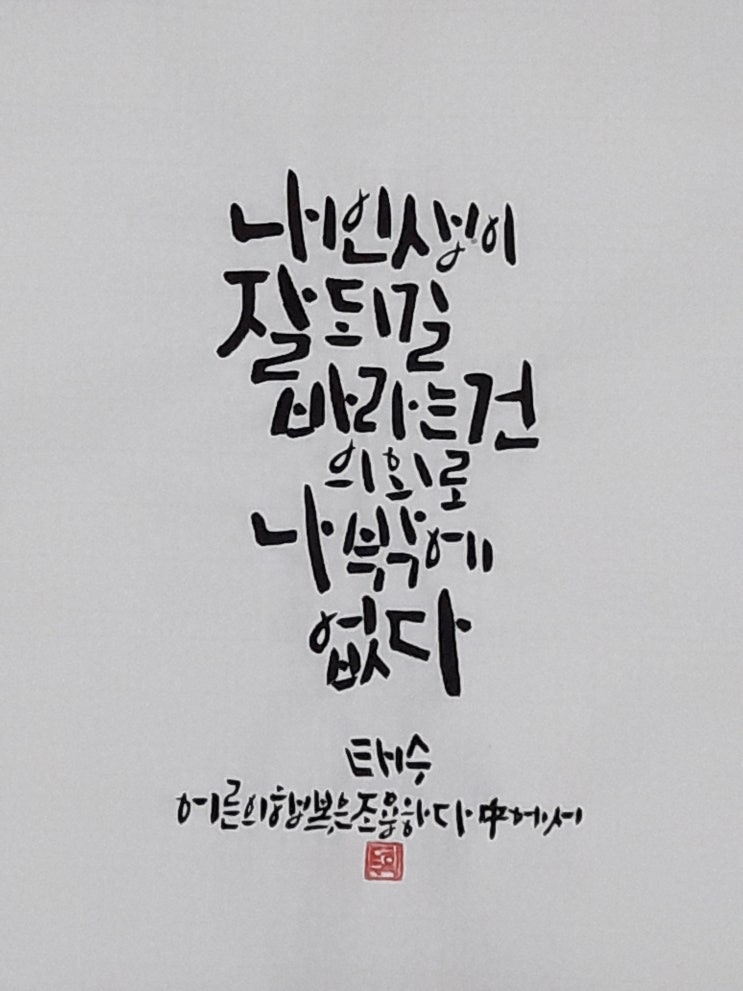 내 인생이
잘 되길
바라는 건
의외로
나 밖에
없다
태수
어른의 행복은 조용하다 中에서